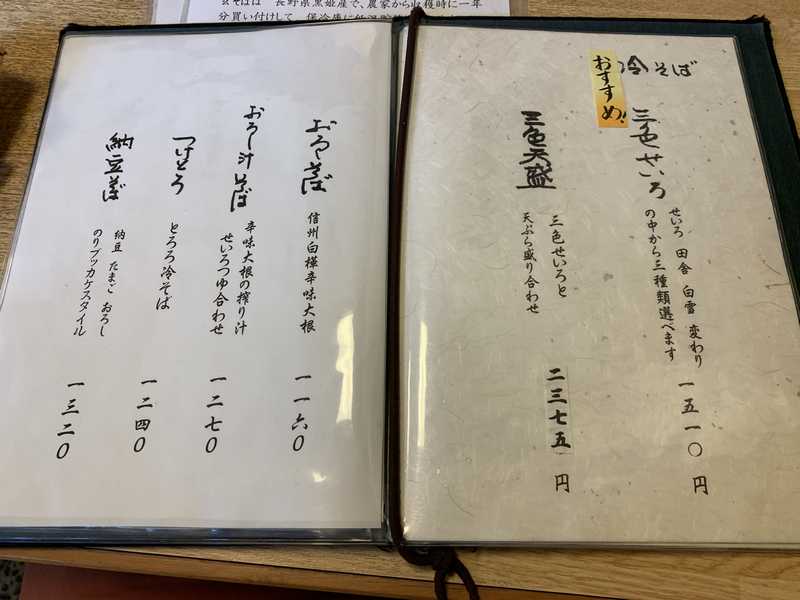 玄そばは 長野県黒姫産で、農家から収穫時に一年
冷そば
おすすめ!
三色せいろ
せいろ 田舎 白雪 変わり
の中から三種類選べます
一五一〇 円
三色天盛
三色せいろと
天ぷら盛り合わせ
二三七五 円
おろしそば
信州白樺辛味大根
一一六〇
おろし汁そば
辛味大根の搾り汁
せいろつゆ合わせ
一二七〇
つけとろ
とろろ冷そば
一二四〇
納豆そば
納豆 たまご おろし
のりブッカケスタイル
一三二〇